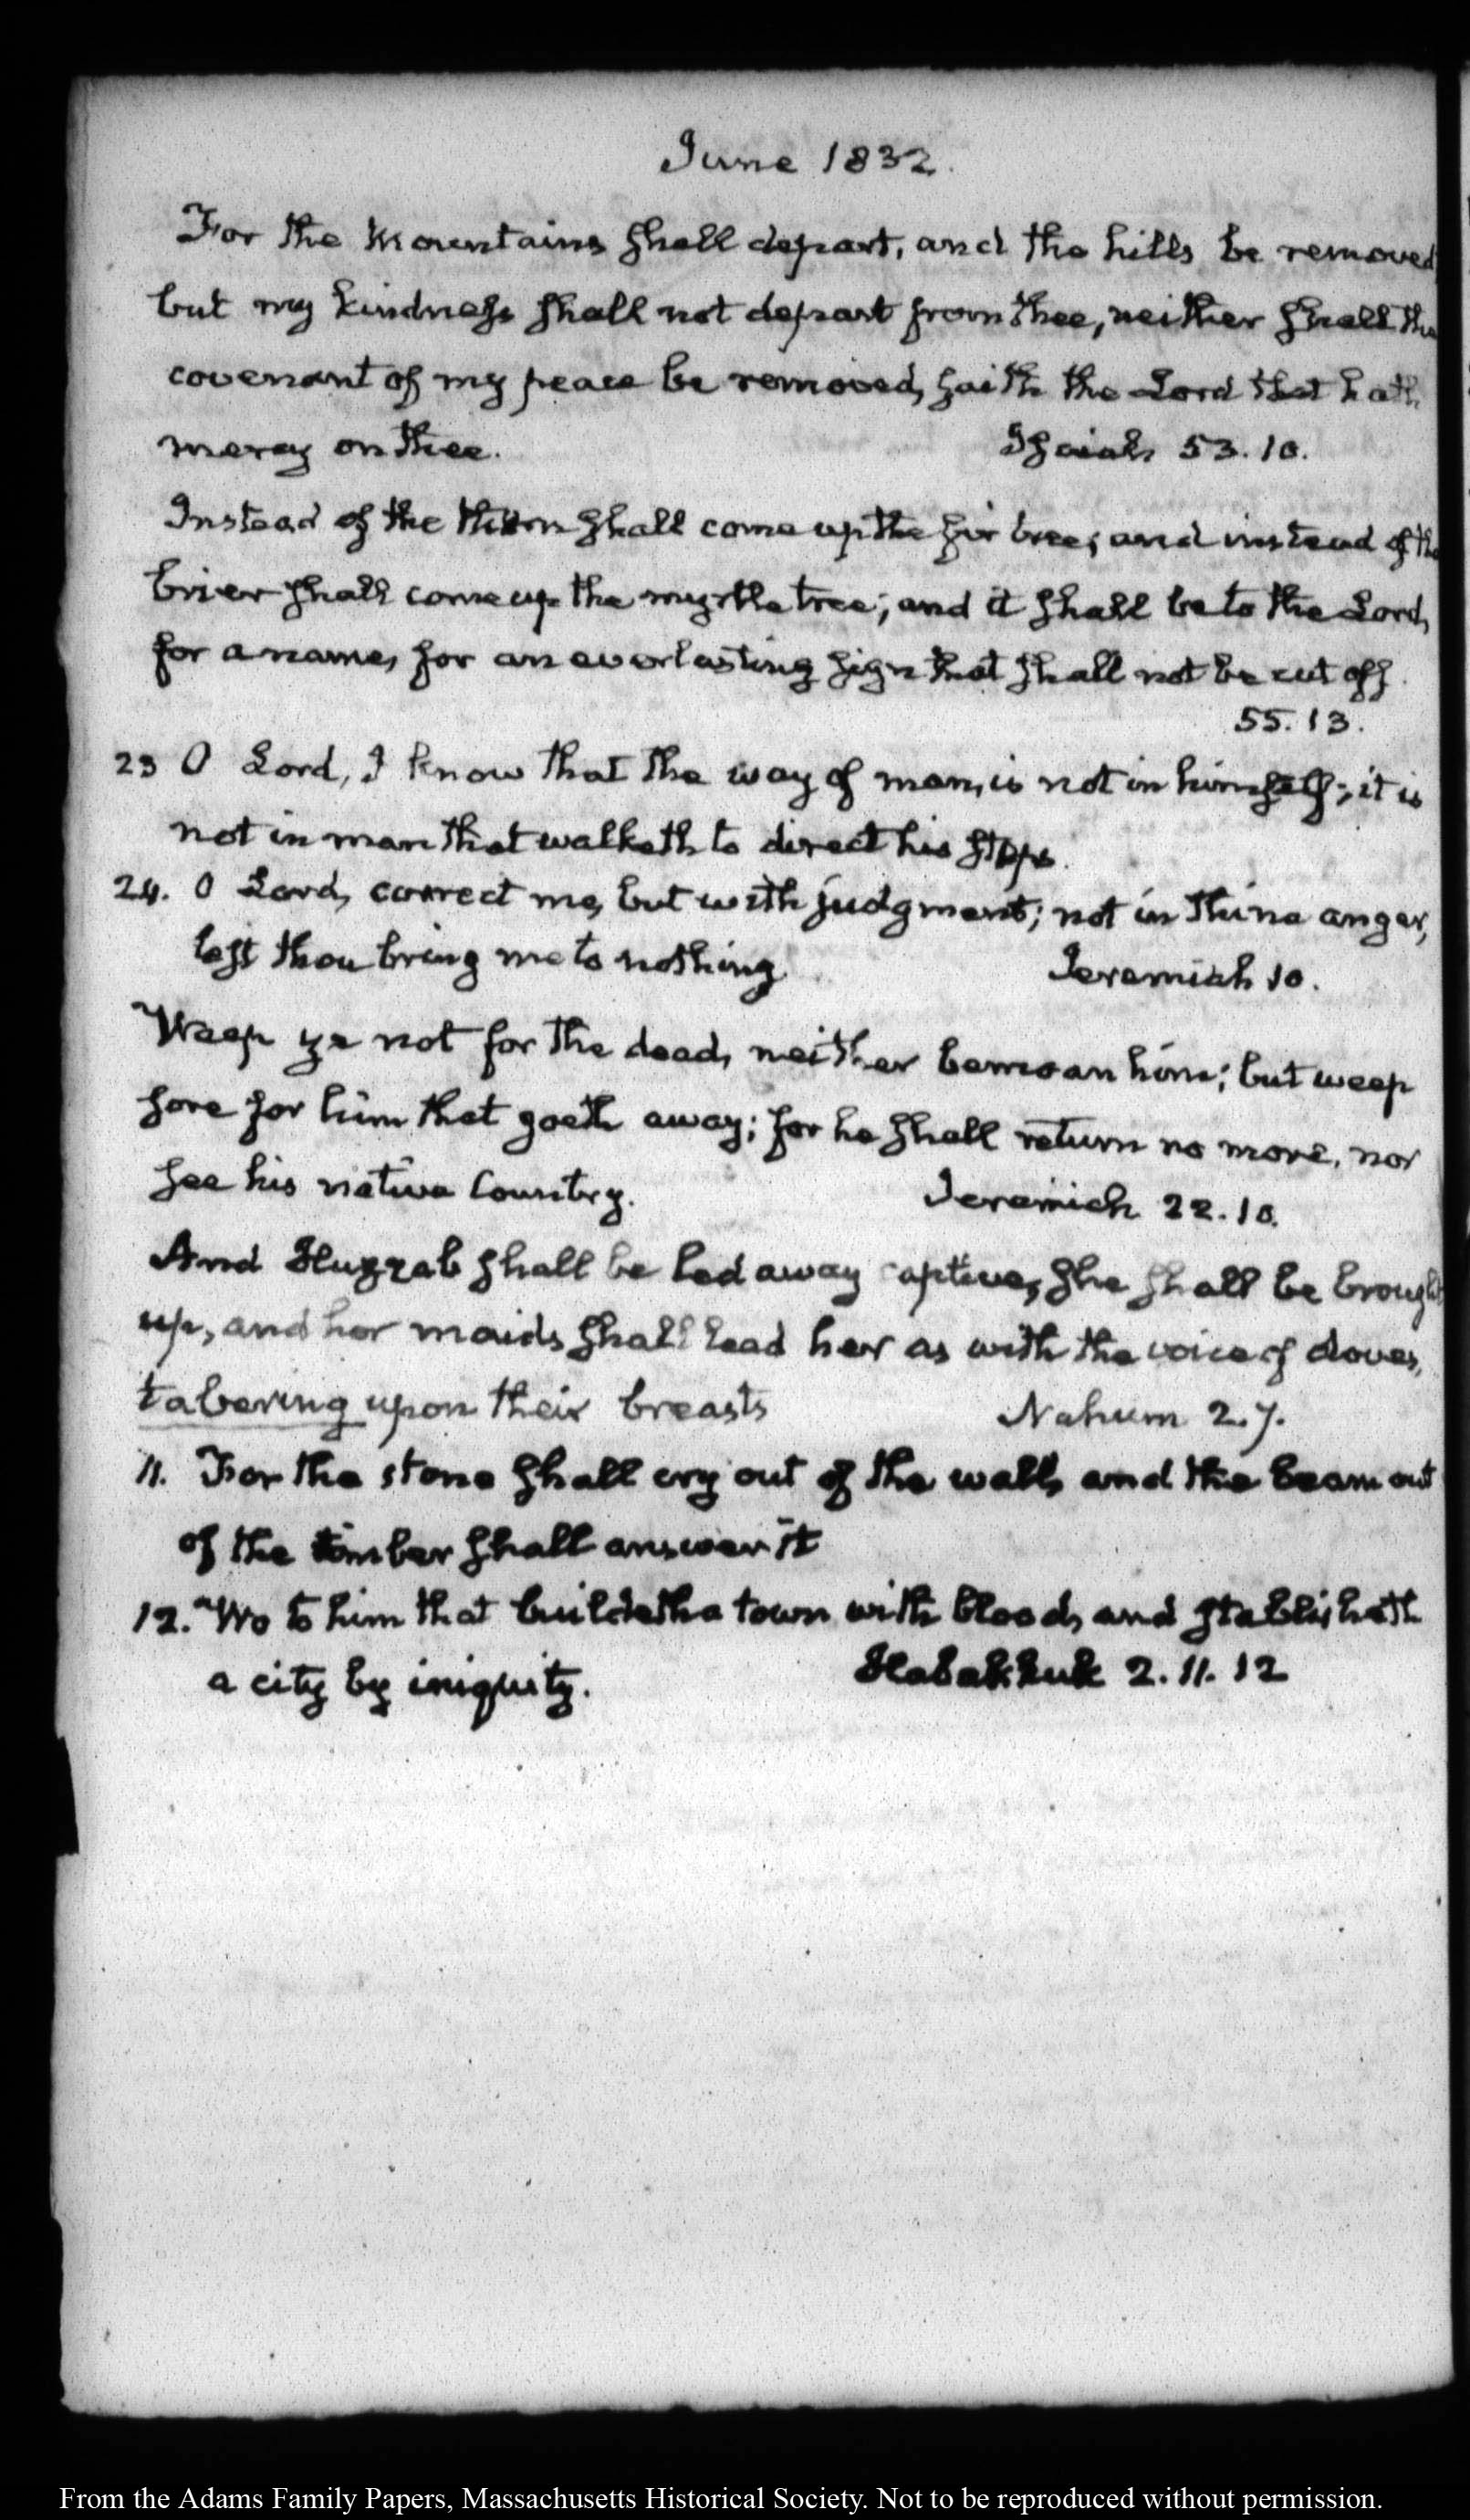 June 1832.
For the Mountains shall depart, and the hills be removed
but my kindness shall not depart from thee, neither shall the
covenant of my peace be removed, saith the Lord that hath
mercy on thee. Isaiah 53.10.
Instead of the thorn shall come up the fir tree; and instead of the
brier shall come up the myrtle tree; and it shall be to the Lord,
for a name, for an everlasting sign that shall not be cut off.
55.13.
23 O Lord, I know that the way of man, is not in himself; it is
not in man that walketh to direct his steps.
24. O Lord, correct me, but with judgment; not in thine anger,
lest thou bring me to nothing. Jeremiah 10.
Weep ye not for the dead, neither bemoan him; but weep
sore for him that goeth away; for he shall return no more, nor
see his native Country. Jeremiah 22.10.
And Huzzab shall be led away captive, she shall be brought
up, and her maids shall lead her as with the voice of doves,
tabering upon their breasts Nahum 2.7.
11. For the stone shall cry out of the wall, and the beam out
of the timber shall answer it
12. Wo to him that buildeth a town with blood, and stablisheth
a city by iniquity. Habakkuk 2.11.12
From the Adams Family Papers, Massachusetts Historical Society. Not to be reproduced without permission.